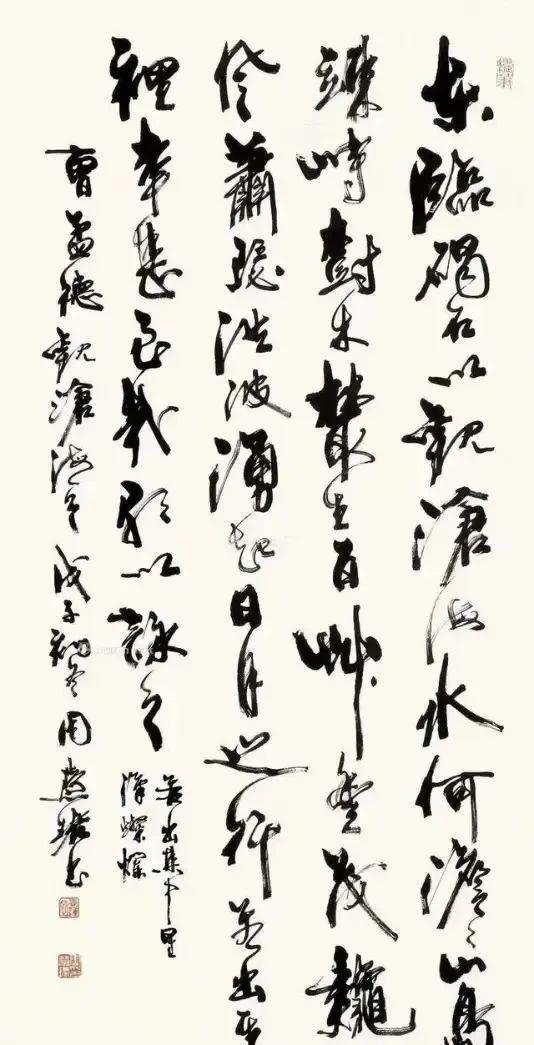 東臨碣石以觀滄海水何澹々山島
竦峙樹木叢生百草豐茂龝
風蕭瑟洪波湧起日月之行若出其
裡幸甚至哉歌以詠之
若出其中星
漢燦爛
曹孟德觀滄海 戊子初冬周慧珺書